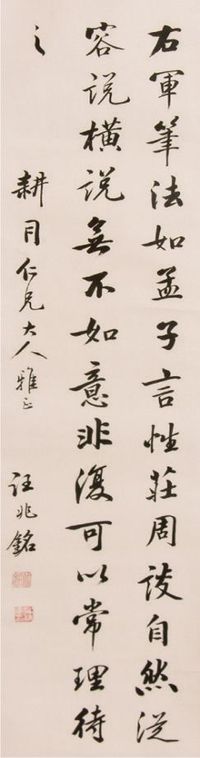 右軍筆法如孟子言性莊周談自然從
容說橫說無不如意非復可以常理待
之
耕月仁兄大人雅正
汪兆銘